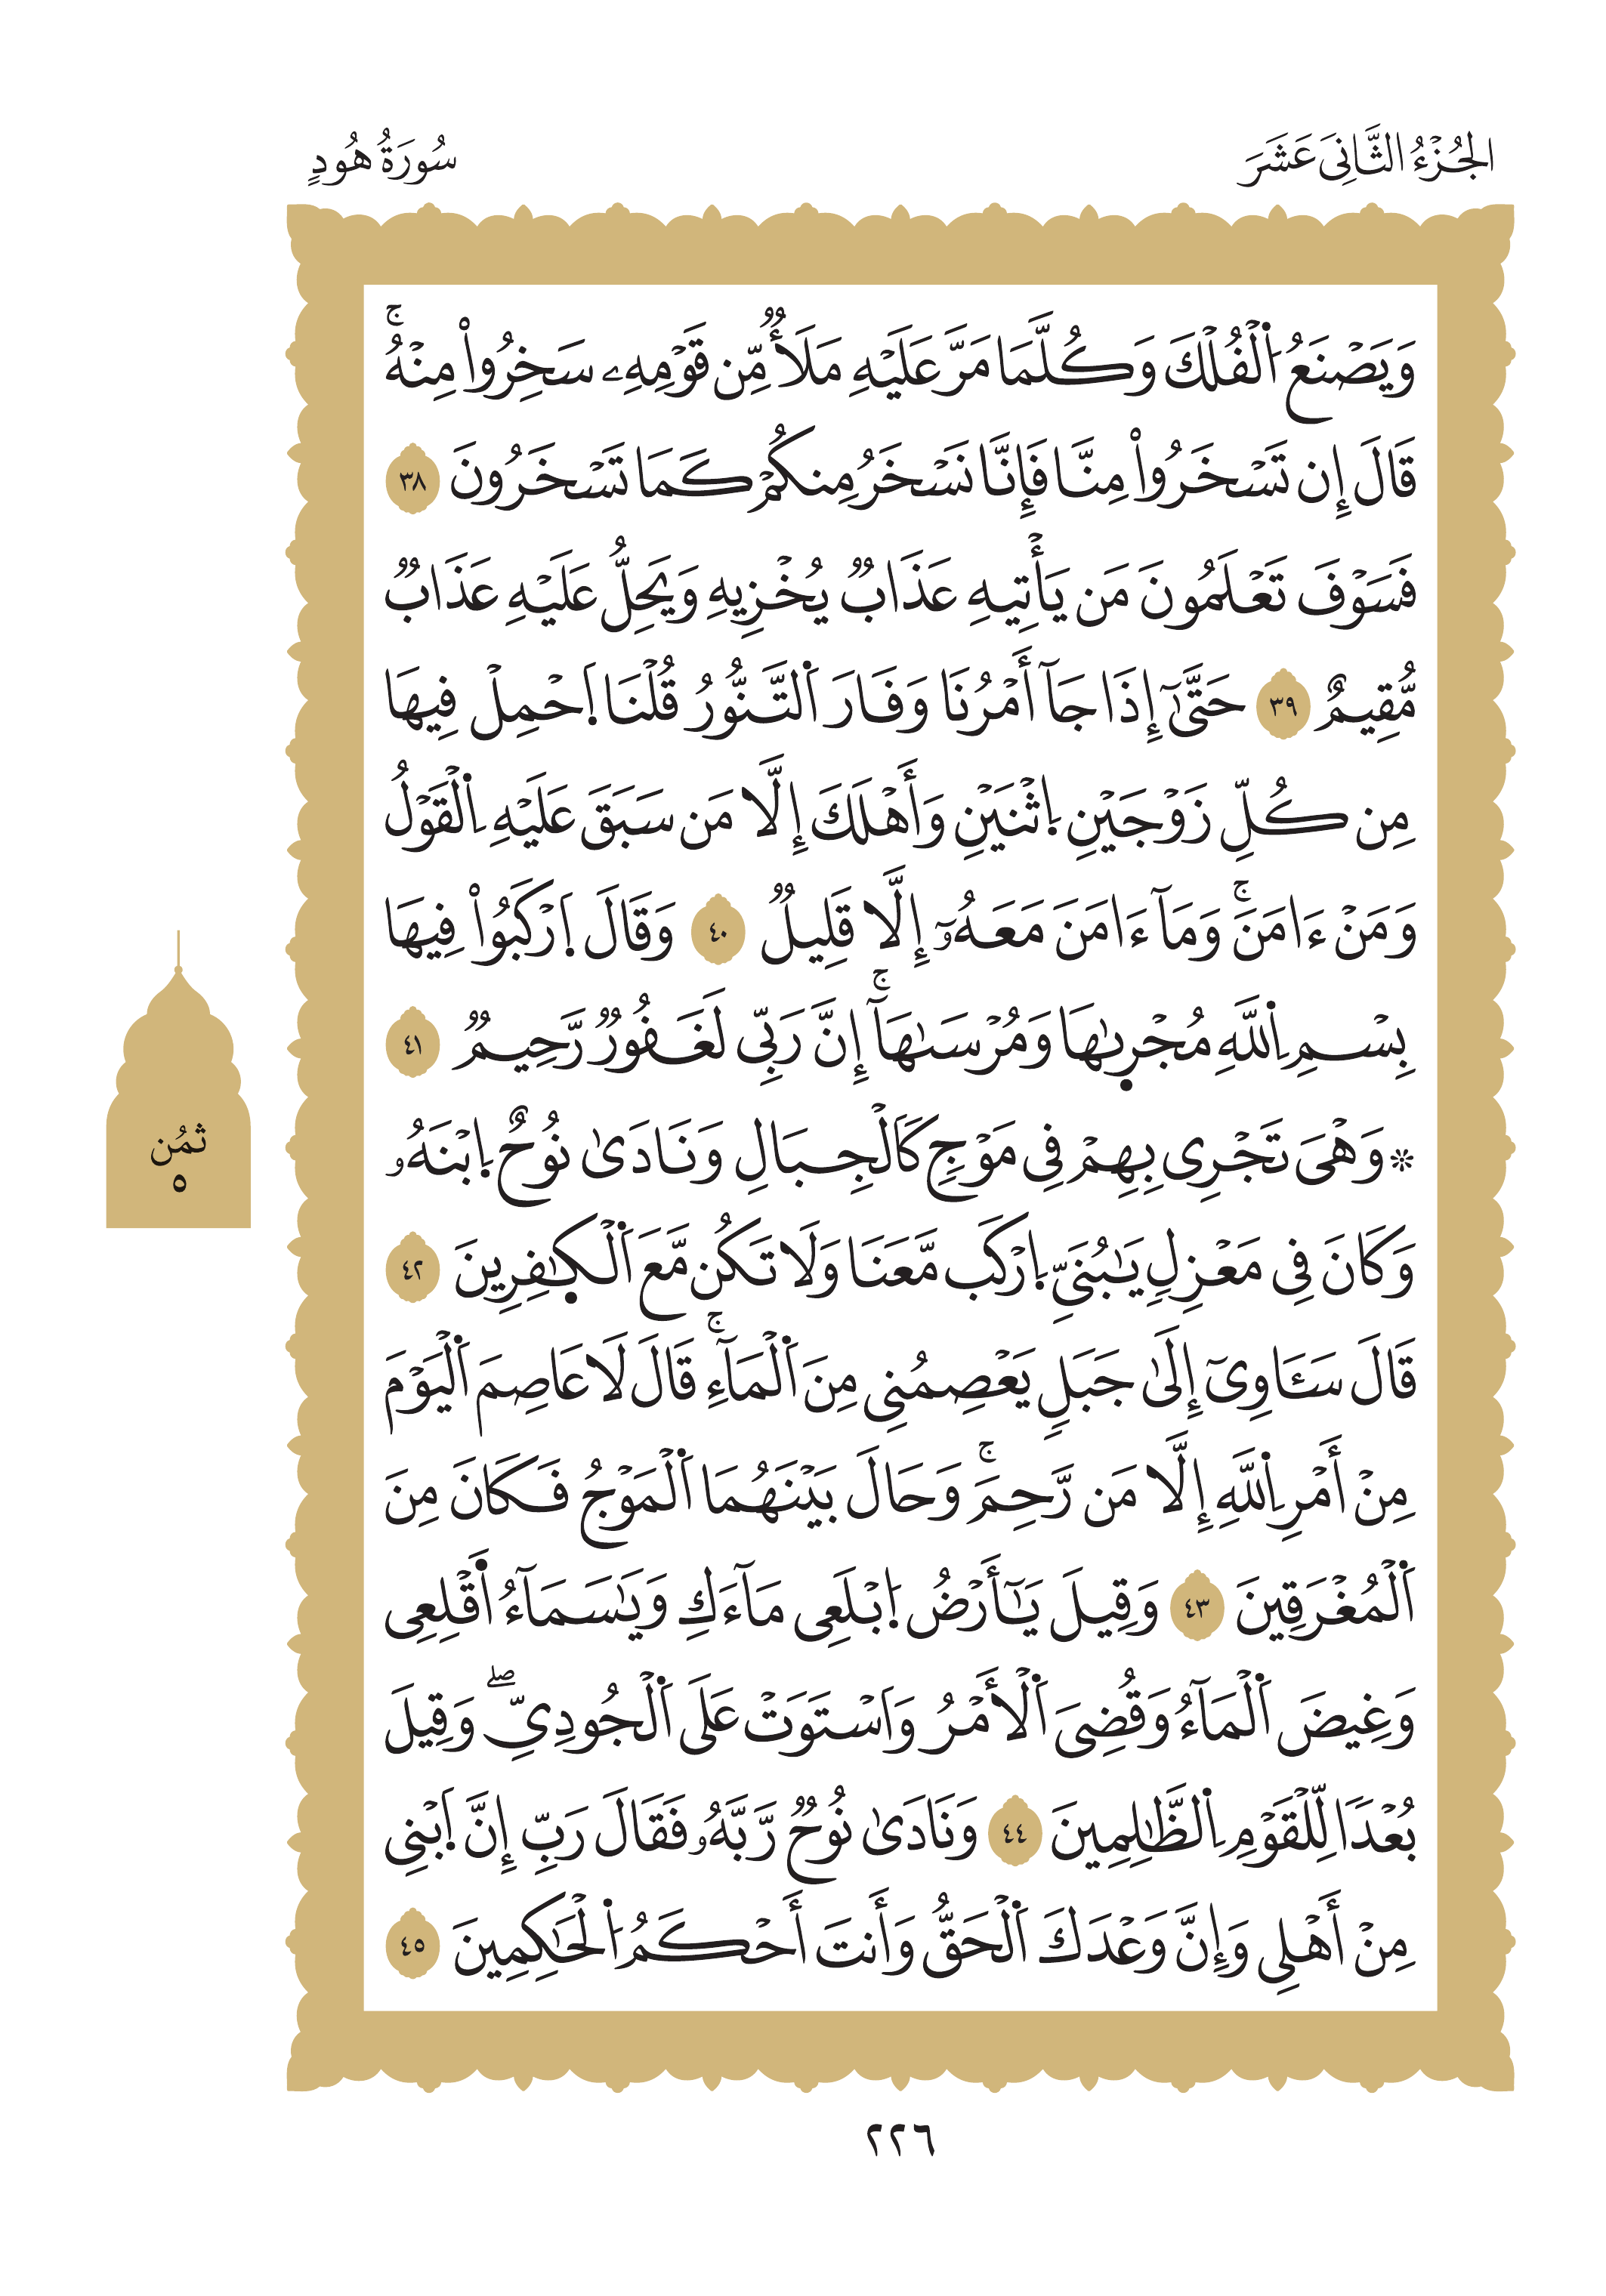 الجُزْءُ الثَّانِيَ عَشَرَ
سُورَةُ هُودٍ
وَيَصْنَعُ اُ۬لْفُلْكَ وَكُلَّمَا مَرَّ عَلَيْهِ مَلَأٞ مِّن قَوْمِهِۦ سَخِرُواْ مِنْهُۚ
قَالَ إِن تَسْخَرُواْ مِنَّا فَإِنَّا نَسْخَرُ مِنكُمْ كَمَا تَسْخَرُونَ ٣٨
فَسَوْفَ تَعْلَمُونَ مَن يَأْتِيهِ عَذَابٞ يُخْزِيهِ وَيَحِلُّ عَلَيْهِ عَذَابٞ
مُّقِيمٌ ٣٩ حَتَّىٰٓ إِذَا جَآ أَمْرُنَا وَفَارَ اَ۬لتَّنُّورُ قُلْنَا اَ۪حْمِلْ فِيهَا
مِن كُلِّ زَوْجَيْنِ اِ۪ثْنَيْنِ وَأَهْلَكَ إِلَّا مَن سَبَقَ عَلَيْهِ اِ۬لْقَوْلُ
وَمَنْ ءَامَنَۚ وَمَآ ءَامَنَ مَعَهُۥٓ إِلَّا قَلِيلٞ ٤٠ وَقَالَ اَ۪رْكَبُواْ فِيهَا
بِسْمِ اِ۬للَّهِ مُجْر۪ىٰهَا وَمُرْسَىٰهَآۚ إِنَّ رَبِّي لَغَفُورٞ رَّحِيمٞ ٤١
۞ وَهْيَ تَجْرِي بِهِمْ فِي مَوْجٖ كَالْجِبَالِ وَنَادَىٰ نُوحٌ اِ۪بْنَهُۥ
وَكَانَ فِي مَعْزِلٖ يَٰبُنَيِّ اِ۪رْكَب مَّعَنَا وَلَا تَكُن مَّعَ اَ۬لْكٰ۪فِرِينَ ٤٢
قَالَ سَـَٔاوِيٓ إِلَىٰ جَبَلٖ يَعْصِمُنِي مِنَ اَ۬لْمَآءِۚ قَالَ لَا عَاصِمَ اَ۬لْيَوْمَ
مِنْ أَمْرِ اِ۬للَّهِ إِلَّا مَن رَّحِمَۚ وَحَالَ بَيْنَهُمَا اَ۬لْمَوْجُ فَكَانَ مِنَ
اَ۬لْمُغْرَقِينَ ٤٣ وَقِيلَ يَٰٓأَرْضُ اُ۪بْلَعِي مَآءَكِ وَيَٰسَمَآءُ ا۬قْلِعِي
وَغِيضَ اَ۬لْمَآءُ وَقُضِيَ اَ۬لْأَمْرُ وَاَسْتَوَتْ عَلَى اَ۬لْجُودِيِّۖ وَقِيلَ
بُعْدٗا لِّلْقَوْمِ اِ۬لظَّٰلِمِينَ ٤٤ وَنَادَىٰ نُوحٞ رَّبَّهُۥ فَقَالَ رَبِّ إِنَّ اَ۪بْنِي
مِنْ أَهْلِي وَإِنَّ وَعْدَكَ اَ۬لْحَقُّ وَأَنتَ أَحْكَمُ اُ۬لْحَٰكِمِينَ ٤٥
ثمُن
٥
٢٢٦